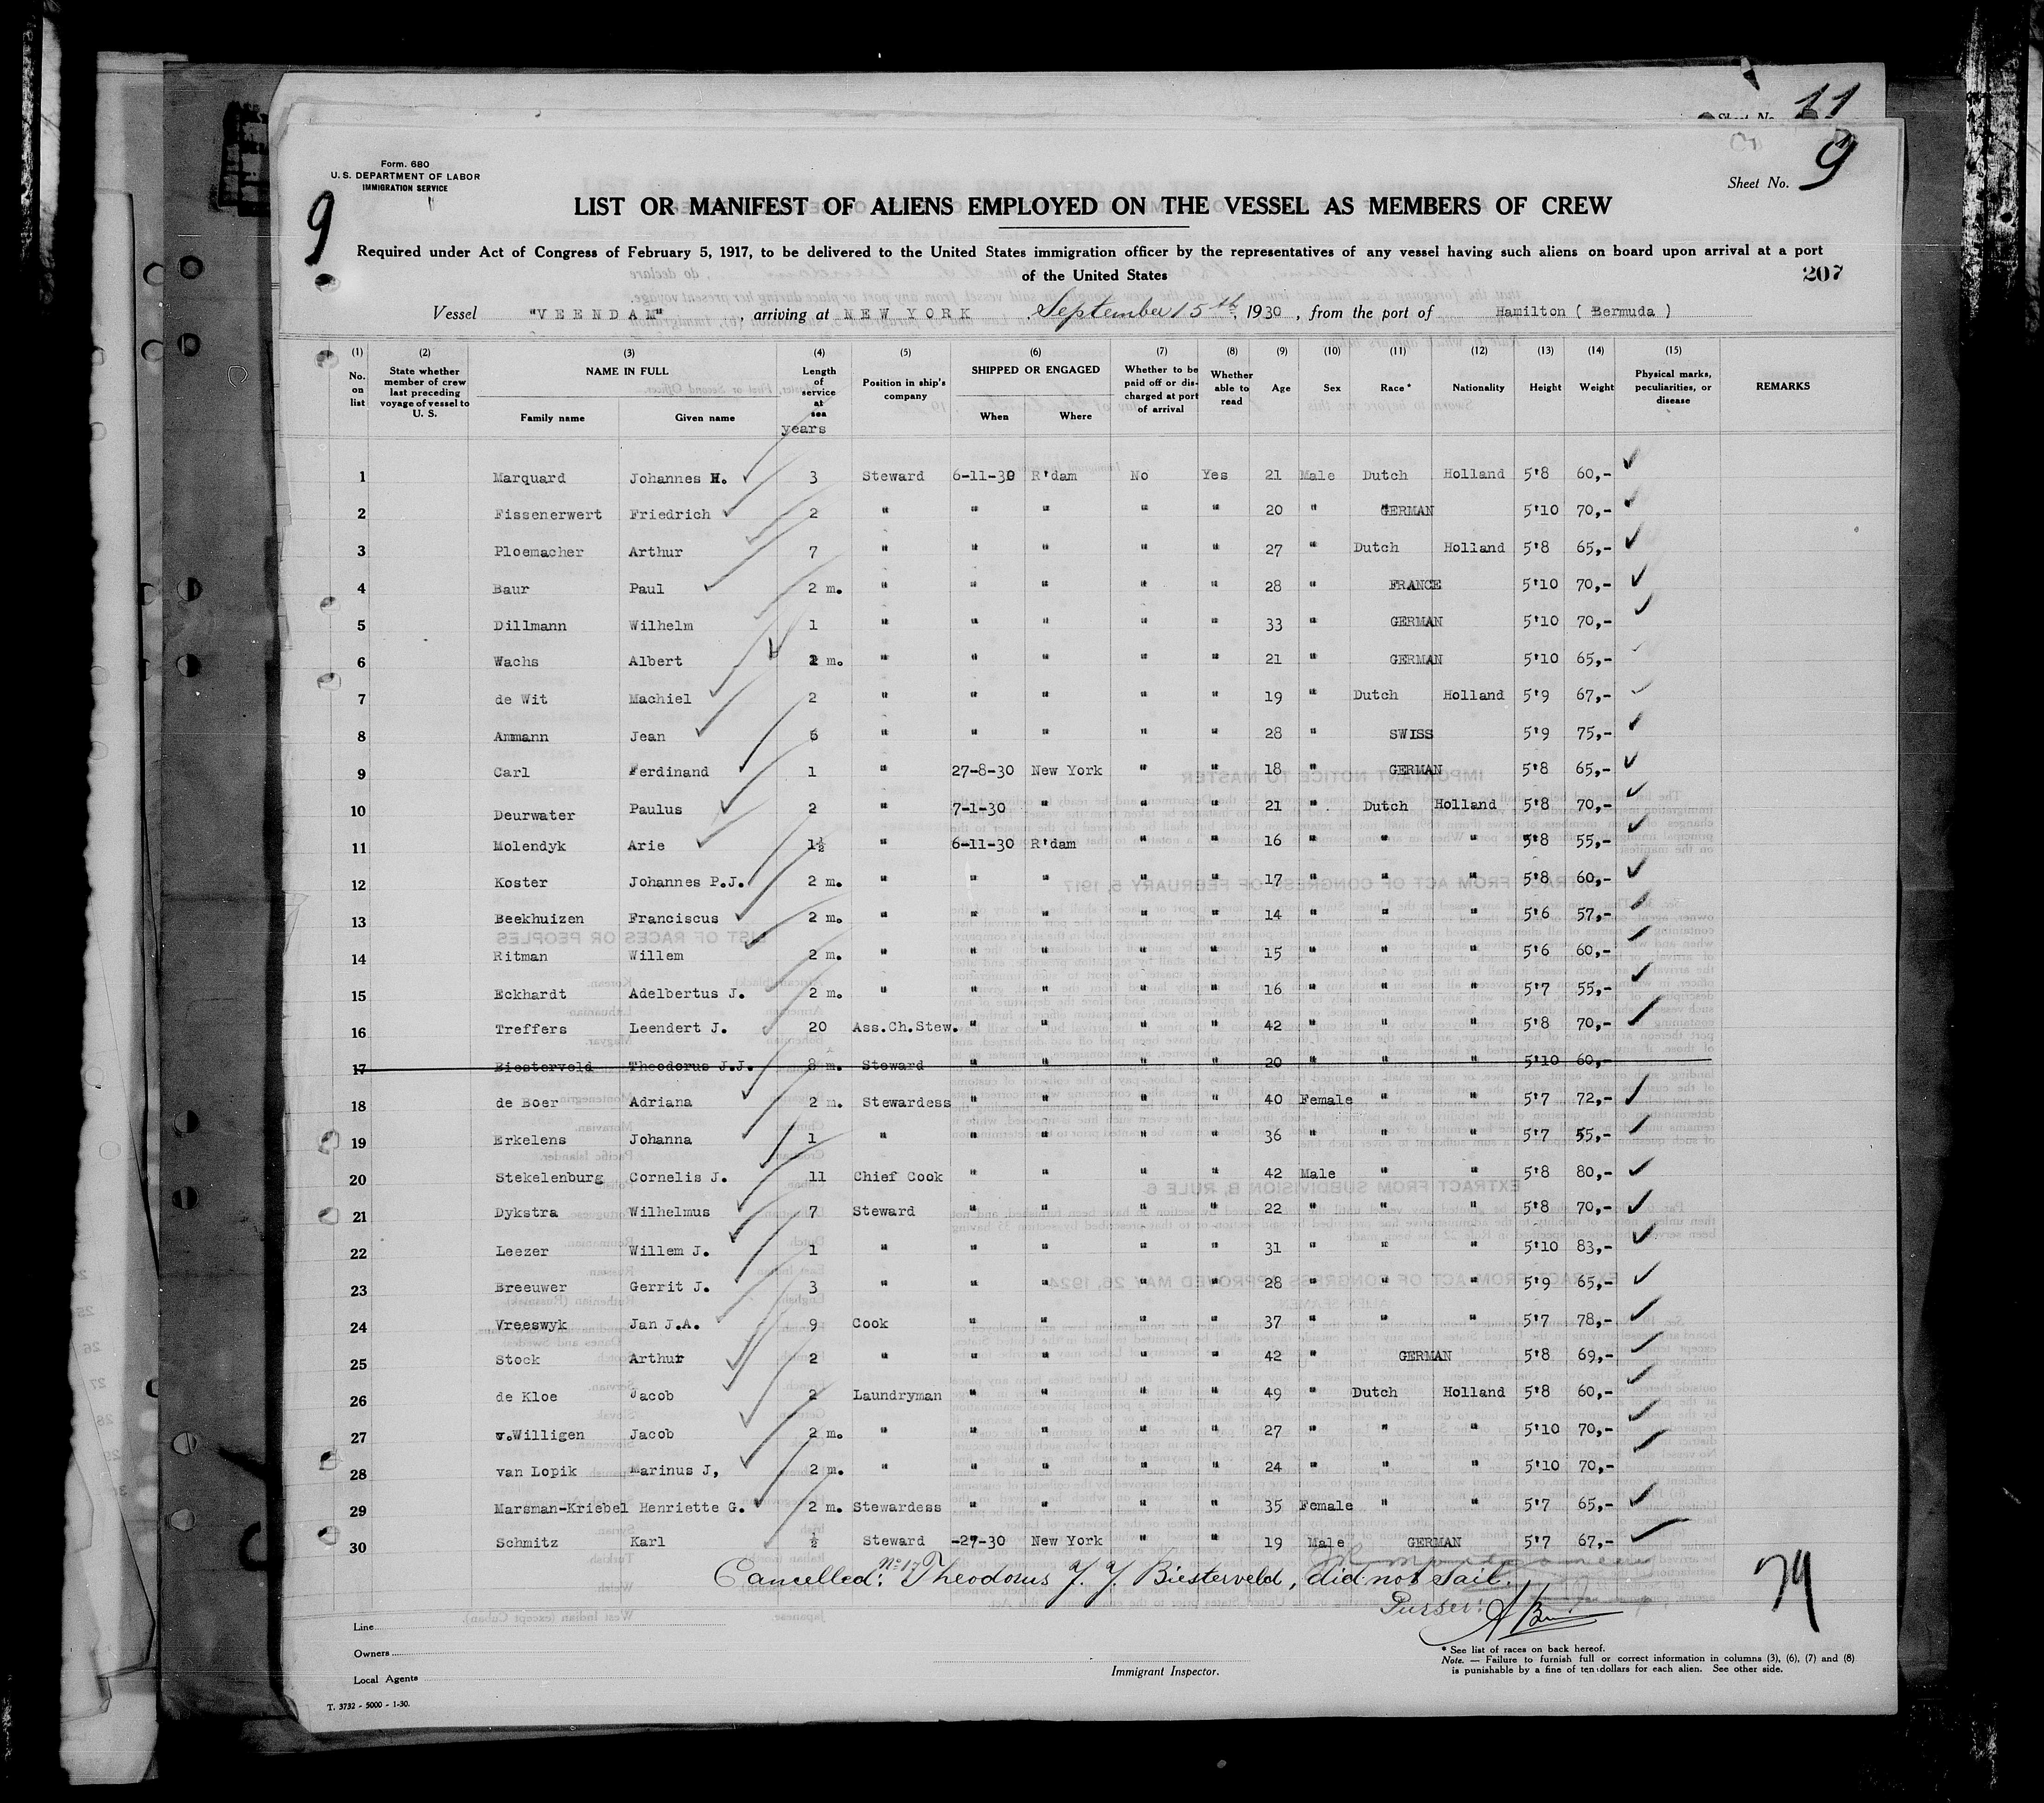 11
Sheet No.
9
Form. 680
U. S. DEPARTMENT OF LABOR
IMMIGRATION SERVICE
Sheet No.
9
LIST OR MANIFEST OF ALIENS EMPLOYED ON THE VESSEL AS MEMBERS OF CREW
Required under Act of Congress of February 5, 1917, to be delivered to the United States immigration officer by the representatives of any vessel having such aliens on board upon arrival at a port
of the United States
207
Vessel "VEENDAM" , arriving at NEW YORK , September 15th, 1930 , from the port of Hamilton ( Bermuda )
(1) No. on list (2) State whether member of crew last preceding voyage of vessel to U. S. (3) NAME IN FULL Family name Given name (4) Length of service at sea years (5) Position in ship's company (6) SHIPPED OR ENGAGED When Where (7) Whether to be paid off or discharged at port of arrival (8) Whether able to read (9) Age (10) Sex (11) Race* (12) Nationality (13) Height (14) Weight (15) Physical marks, peculiarities, or disease REMARKS
1 Marquard Johannes H. 3 Steward 6-11-30 R'dam No Yes 21 Male Dutch Holland 5'8 60,-
2 Fissenerwert Friedrich 2 " " " " " 20 " GERMAN 5'10 70,-
3 Ploemacher Arthur 7 " " " " " 27 " Dutch Holland 5'8 65,-
4 Baur Paul 2 m. " " " " " 28 " FRANCE 5'10 70,-
5 Dillmann Wilhelm 1 " " " " " 33 " GERMAN 5'10 70,-
6 Wachs Albert 2 m. " " " " " 21 " GERMAN 5'10 65,-
7 de Wit Machiel 2 " " " " " 19 " Dutch Holland 5'9 67,-
8 Ammann Jean 6 " " " " " 28 " SWISS 5'9 75,-
9 Carl Ferdinand 1 " 27-8-30 New York " " 18 " GERMAN 5'8 65,-
10 Deurwater Paulus 2 " 7-1-30 " " " 21 " Dutch Holland 5'8 70,-
11 Molendyk Arie 1½ " 6-11-30 R'dam " " 16 " " " 5'8 55,-
12 Koster Johannes P.J. 2 m. " " " " " 17 " " " 5'8 60,-
13 Beekhuizen Franciscus 2 m. " " " " " 14 " " " 5'6 57,-
14 Ritman Willem 2 m. " " " " " 15 " " " 5'6 60,-
15 Eckhardt Adelbertus J. 2 m. " " " " " 16 " " " 5'7 55,-
16 Treffers Leendert J. 20 Ass.Ch.Stew. " " " " 42 " " " 5'8 70,-
17 Biesterveld Theodorus J.J. 8 m. Steward " " " " 20 " " " 5'10 60,-
18 de Boer Adriana 2 m. Stewardess " " " " 40 Female " " 5'7 72,-
19 Erkelens Johanna 1 " " " " " 36 " " " 5'7 55,-
20 Stekelenburg Cornelis J. 11 Chief Cook " " " " 42 Male " " 5'8 80,-
21 Dykstra Wilhelmus 7 Steward " " " " 22 " " " 5'8 70,-
22 Leezer Willem J. 1 " " " " " 31 " " " 5'10 83,-
23 Breeuwer Gerrit J. 3 " " " " " 28 " " " 5'9 65,-
24 Vreeswyk Jan J.A. 9 Cook " " " " 37 " " " 5'7 78,-
25 Stock Arthur 2 " " " " " 42 " GERMAN 5'8 69,-
26 de Kloe Jacob 2 Laundryman " " " " 49 " Dutch Holland 5'8 60,-
27 v.Willigen Jacob 2 m. " " " " " 27 " " " 5'10 70,-
28 van Lopik Marinus J, 2 m. " " " " " 24 " " " 5'10 70,-
29 Marsman-Kriebel Henriette G. 2 m. Stewardess " " " " 35 Female " " 5'7 65,-
30 Schmitz Karl ½ Steward -27-30 New York " " 19 Male GERMAN 5'7 67,-
Cancelled: No 17 Theodorus J. J. Biesterveld, did not sail.
Purser:
79
Line
Owners
Local Agents
Immigrant Inspector.
* See list of races on back hereof.
Note. — Failure to furnish full or correct information in columns (3), (6), (7) and (8)
is punishable by a fine of ten dollars for each alien. See other side.
T. 3732 - 5000 - 1-30.